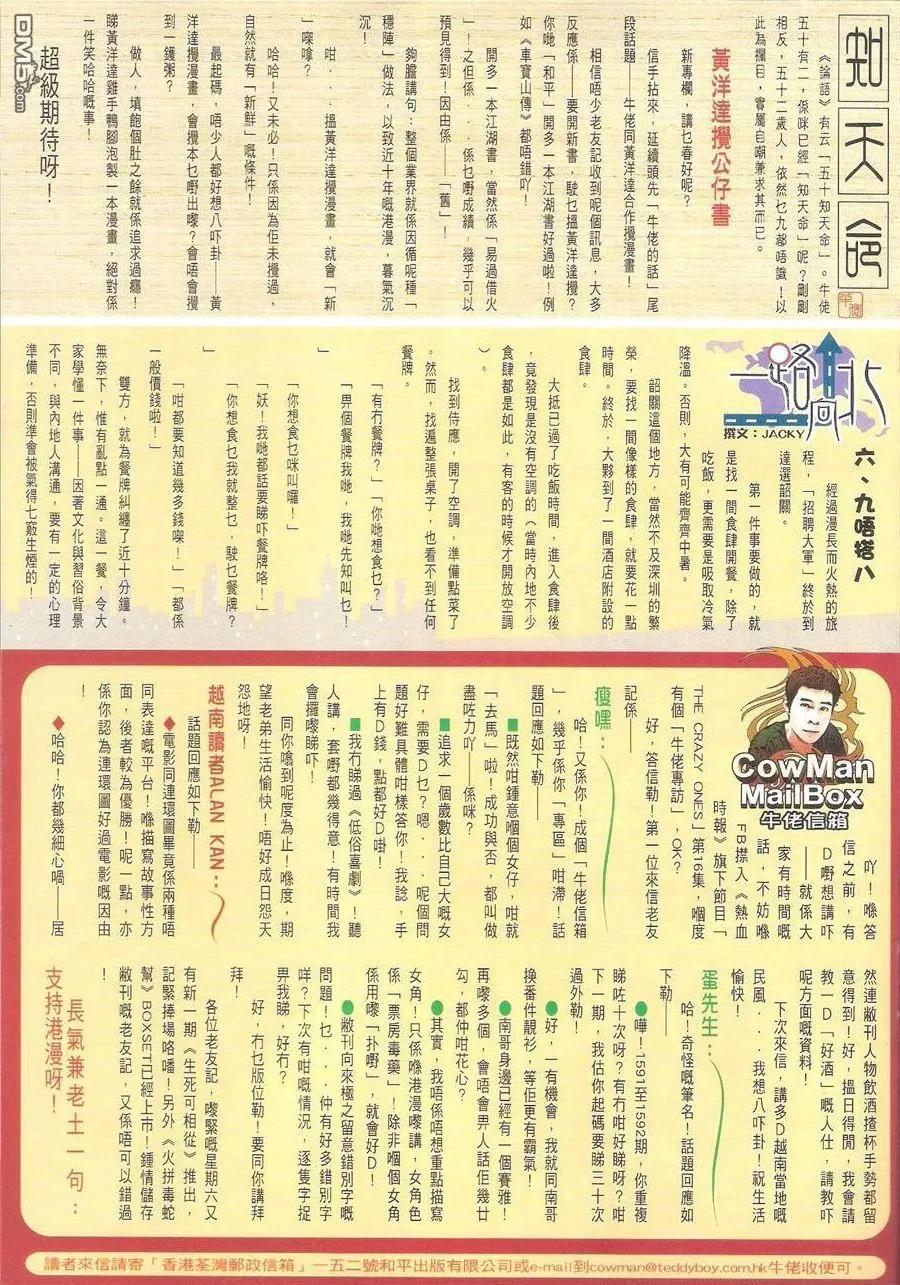 知天命
《論語》有云「五十知天命」。牛佬
五十有二，係咪已經「知天命」呢？剛剛
相反，五十二歲人，依然乜九都唔識！以
此為欄目，實屬自嘲兼求其而已。
黃洋達攪公仔書
新專欄，講乜春好呢？
信手拈來，延續頭先「牛佬的話」尾
段話題——牛佬同黃洋達合作攪漫畫！
相信唔少老友記收到呢個訊息，大多
反應係——要開新書，駛乜搵黃洋達攪？
你哋「和平」開多一本江湖書好過啦！例
如《車寶山傳》都唔錯吖！
開多一本江湖書，當然係「易過借火
」！之但係．．．係乜嘢成績，幾乎可以
預見得到！因由係——「舊」！
夠膽講句：整個業界就係因循呢種「
穩陣」做法，以致近十年嘅港漫，暮氣沉
沉！
咁．．．搵黃洋達攪漫畫，就會「新
」㗎嗱？
哈哈！又未必！只係因為佢未攪過，
自然就有「新鮮」嘅條件！
最起碼，唔少人都好想八吓卦——黃
洋達攪漫畫，會攪本乜嘢出嚟？會唔會攪
到一鑊粥？
做人，填飽個肚之餘就係追求過癮！
睇黃洋達雞手鴨腳泡製一本漫畫，絕對係
一件笑哈哈嘅事！
超級期待呀！
DM5.com
一路向北
撰文：JACKY
六、九唔搭八
經過漫長而火熱的旅
程，「招聘大軍」終於到
達選韶關。
第一件事要做的，就
是找一間食肆開餐，除了
吃飯，更需要是吸取冷氣
降溫。否則，大有可能齊齊中暑。
韶關這個地方，當然不及深圳的繁
榮，要找一間像樣的食肆，就要花一點
時間。終於，大夥到了一間酒店附設的
食肆。
大抵已過了吃飯時間，進入食肆後
，竟發現是沒有空調的（當時內地不少
食肆都是如此，有客的時候才開放空調
）。
找到侍應，開了空調，準備點菜了
。然而，找遍整張桌子，也看不到任何
餐牌。
「有冇餐牌？」「你哋想食乜？」
「畀個餐牌我哋，我哋先知叫乜！
」
「你想食乜咪叫囉！」
「妖！我哋都話要睇吓餐牌咯！」
「你想食乜我就整乜，駛乜餐牌？
」
「咁都要知道幾多錢㗎！」「都係
一般價錢啦！」
雙方，就為餐牌糾纏了近十分鐘。
無奈下，惟有亂點一通。這一餐，令大
家學懂一件事——因著文化與習俗背景
不同，與內地人溝通，要有一定的心理
準備，否則準會被氣得七竅生煙的！
CowMan
MailBox
牛佬信箱
吖！喺答
信之前，有
D嘢想講吓
——就係大
家有時間嘅
話，不妨喺
FB㩒入《熱血
時報》旗下節目「
THE CRAZY ONES」第16集，嗰度
有個「牛佬專訪」，OK？
好，答信勒！第一位來信老友
記係——
瘦嘿：
哈！又係你！成個「牛佬信箱
」，幾乎係你「專區」咁滯！話
題回應如下勒——
■既然咁鍾意嗰個女仔，咁就
「去馬」啦！成功與否，都叫做
盡咗力吖——係咪？
■追求一個歲數比自己大嘅女
仔，需要D乜？嗯．．．呢個問
題好難具體咁樣答你！我諗，手
上有D錢，點都好D啩！
■我冇睇過《低俗喜劇》！聽
人講，套嘢都幾得意！有時間我
會攞嚟睇吓！
同你噏到呢度為止！喺度，期
望老弟生活愉快！唔好成日怨天
怨地呀！
越南讀者ALAN KAN：
話題回應如下勒——
◆電影同連環圖畢竟係兩種唔
同表達嘅平台！喺描寫故事性方
面，後者較為優勝！呢一點，亦
係你認為連環圖好過電影嘅因由
！
◆哈哈！你都幾細心喎——居
然連敝刊人物飲酒揸杯手勢都留
意得到！好，搵日得閒，我會請
教一D「好酒」嘅人仕，請教吓
呢方面嘅資料！
下次來信，講多D越南當地嘅
民風．．．我想八吓卦！祝生活
愉快！
蛋先生：
哈！奇怪嘅筆名！話題回應如
下勒——
●嘩！1591至1592期，你重複
睇咗十次呀？有冇咁好睇呀？咁
下一期，我估你起碼要睇三十次
過外勒！
●好，一有機會，我就同南哥
換番件靚衫，等佢更有霸氣！
●南哥身邊已經有一個賽雅！
再嚟多個，會唔會畀人話佢幾廿
勾，都仲咁花心？
●其實，我唔係唔想重點描寫
女角！只係喺港漫嚟講，女角色
係「票房毒藥」！除非嗰個女角
係用嚟「扑嘢」，就會好D！
●敝刊向來極之留意錯別字嘅
問題！乜．．．仲有好多錯別字
咩？下次有咁嘅情況，逐隻字捉
畀我睇，好冇？
好，冇乜版位勒！要同你講拜
拜！
各位老友記，嚟緊嘅星期六又
有新一期《生死可相從》推出，
記緊捧場咯喎！另外《火拼毒蛇
幫》BOXSET已經上市！鍾情儲存
敝刊嘅老友記，又係唔可以錯過
！
長氣兼老土一句：
支持港漫呀！
讀者來信請寄「香港荃灣郵政信箱」一五二號和平出版有限公司或e-mail到cowman@teddyboy.com.hk牛佬收便可。